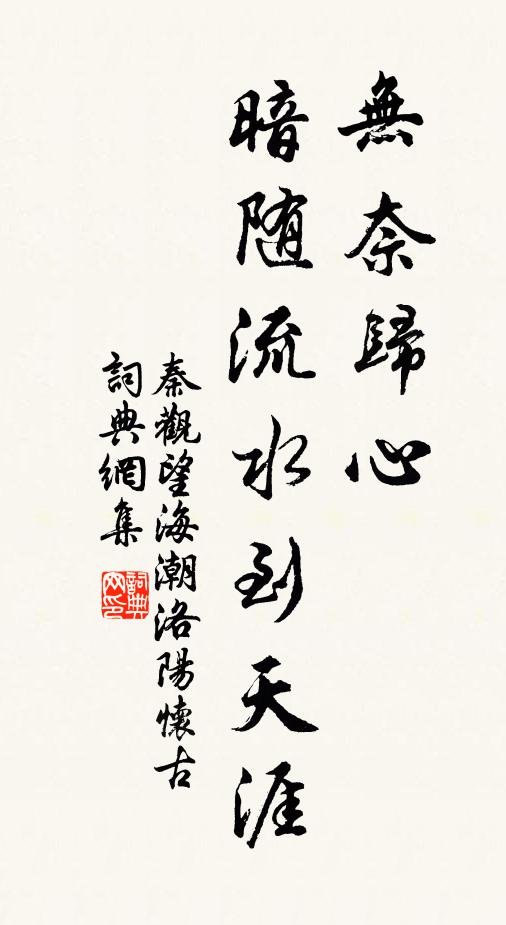 無奈歸心
暗随流水到天涯
秦觀望海潮洛陽懷古
詞典網集
詞典网印